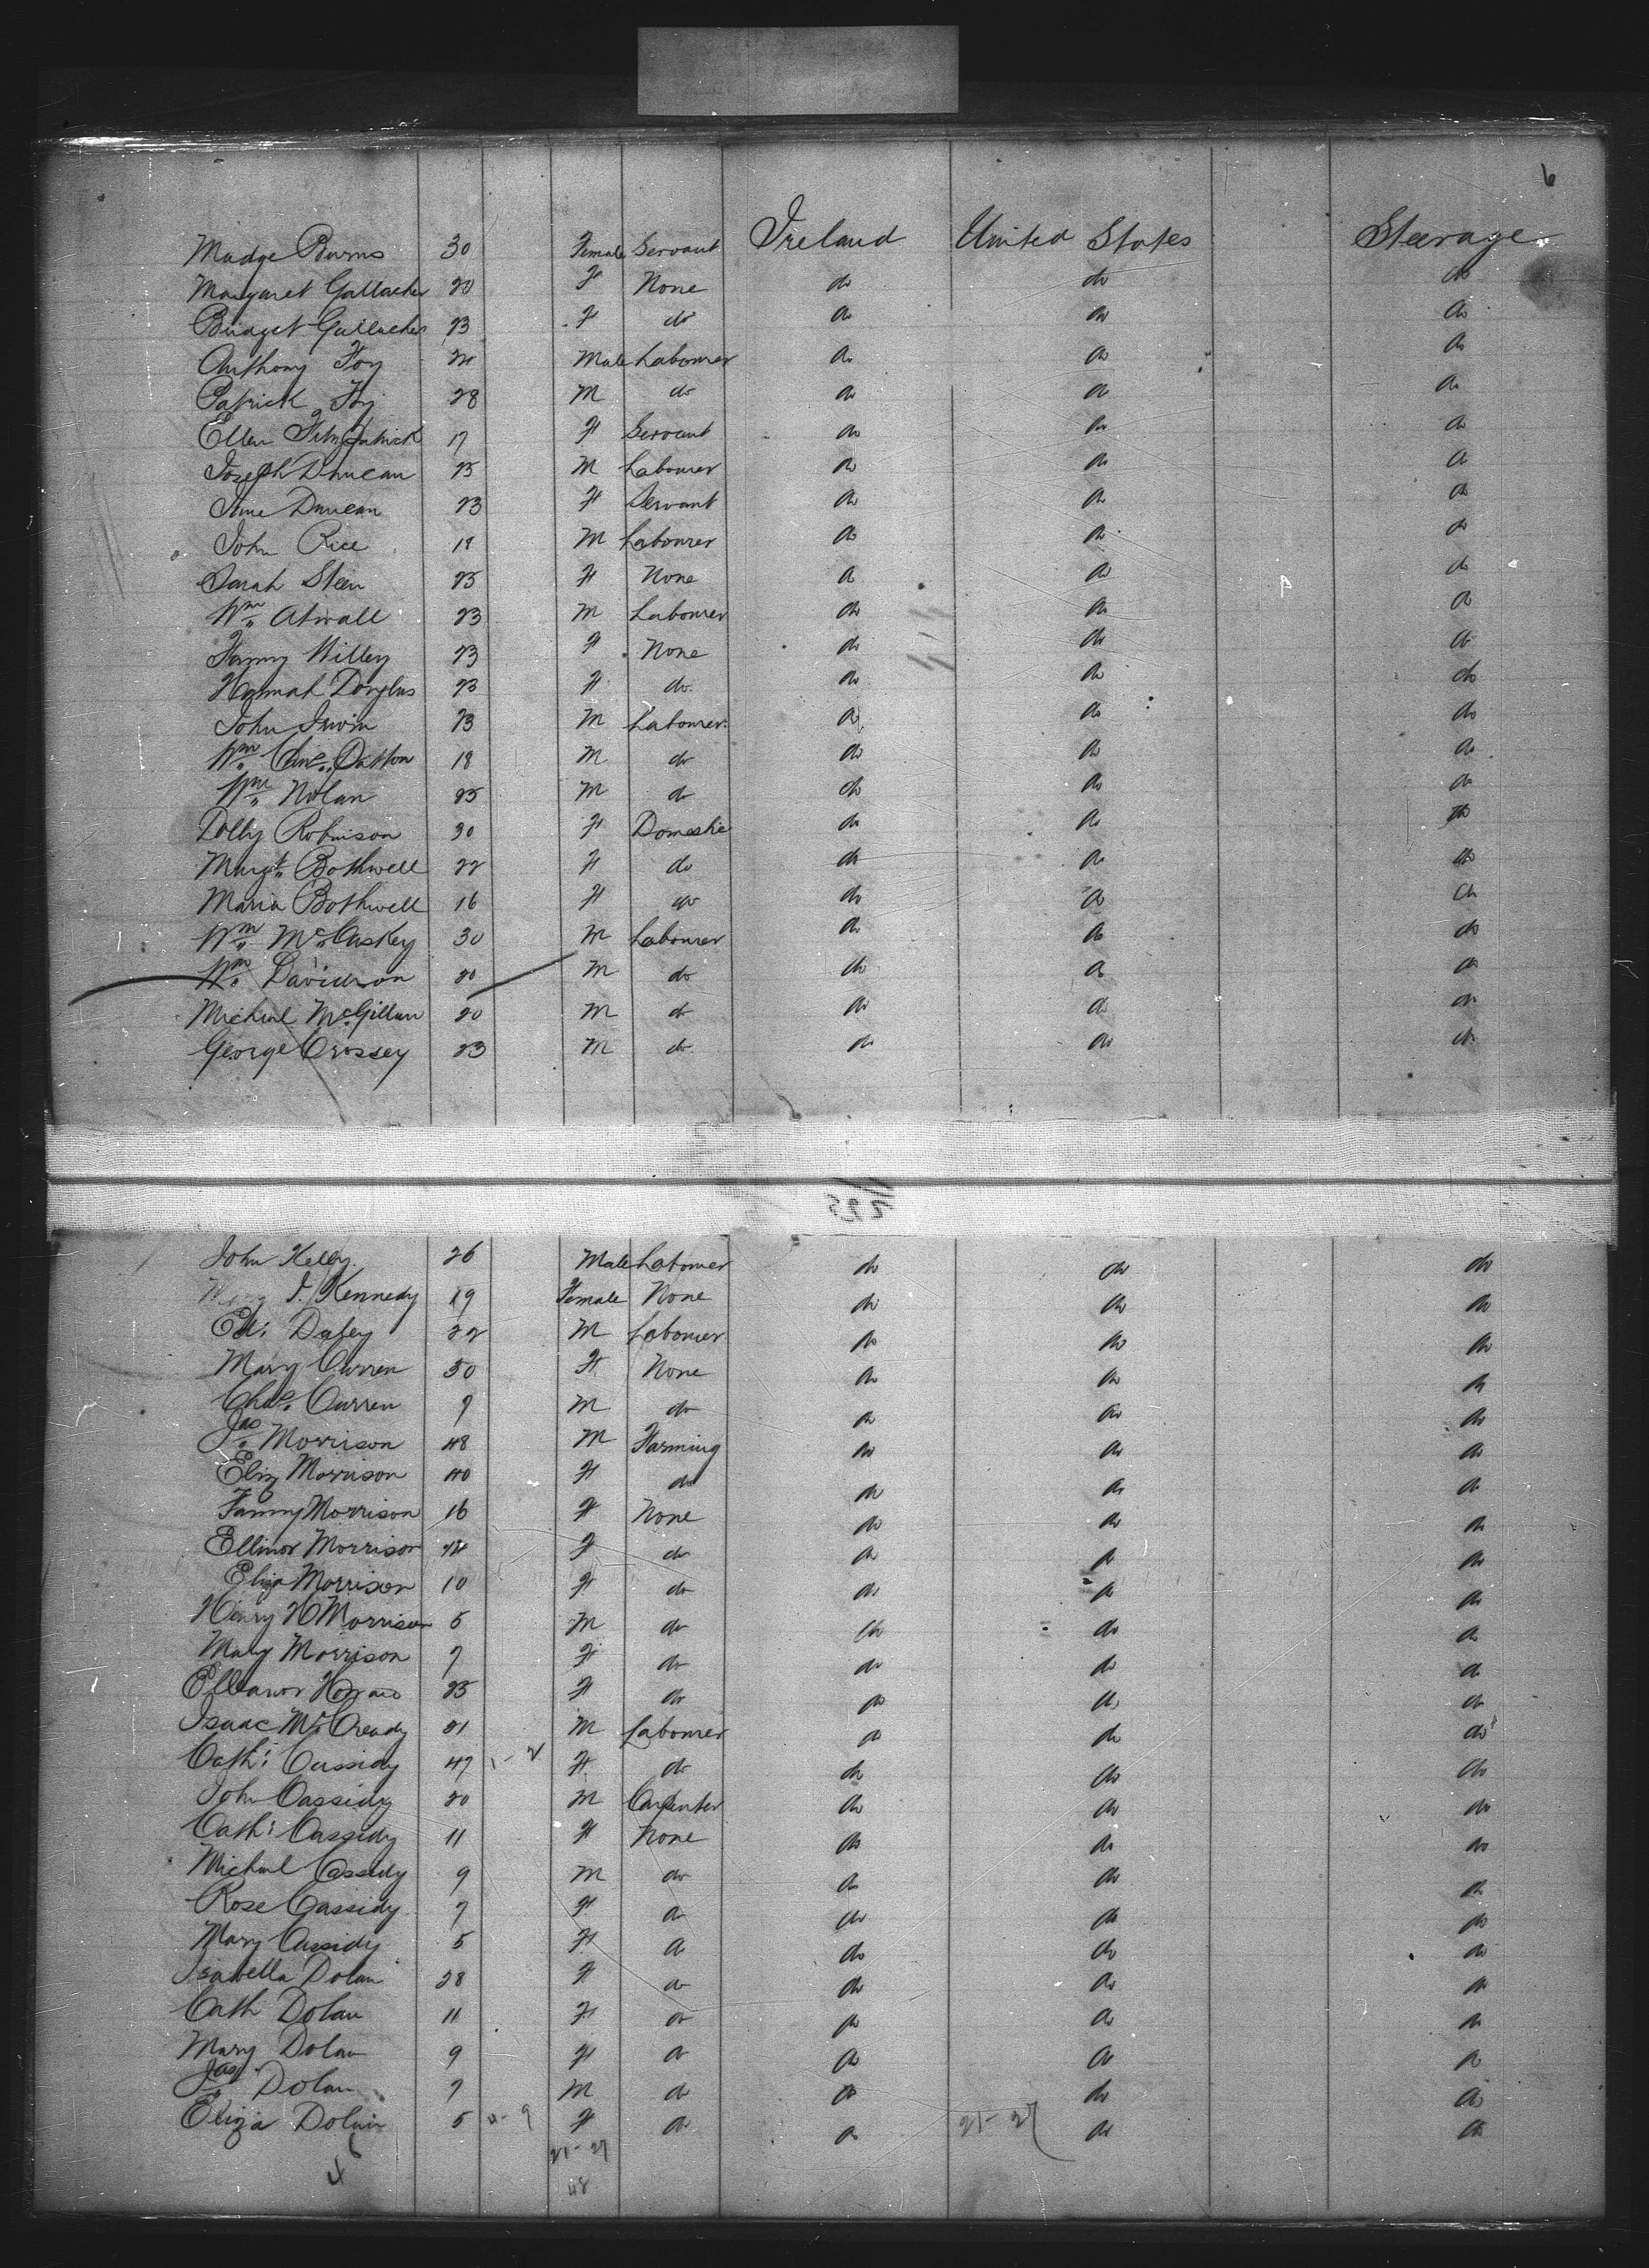 6
Madge Burns 30 Female Servant Ireland United States Steerage
Margaret Gallacher 20 F None do do do
Bridget Gallacher 23 F do do do do
Anthony Foy Male Labourer do do do
Patrick Foy 28 M do do do do
Ellen Fitzpatrick 17 F Servant do do do
Joseph Duncan 25 M Labourer do do do
Jane Duncan 23 F Servant do do do
John Rice 18 M Labourer do do do
Sarah Steen 25 F None do do do
Wm Atwall 23 M Labourer do do do
Fanny Willey 23 F None do do do
Hannah Douglas 23 F do do do do
John Irwin 23 M Labourer do do do
Wm Patton 18 M do do do do
Wm Nolan 25 M do do do do
Dolly Robinson 30 F Domestic do do do
Margt Bothwell 22 F do do do do
Maria Bothwell 16 F do do do do
Wm McCaskey 30 M Labourer do do do
Wm Davidson 20 M do do do do
Michael McGillan 20 M do do do do
George Crossey 23 M do do do do
John Kelly 26 Male Labourer do do do
J. Kennedy 19 Female None do do do
Ed: Daley 22 M Labourer do do do
Mary Curren 30 F None do do do
Chas Curren 7 M do do do do
Jas Morrison 48 M Farming do do do
Eliz Morrison 40 F do do do do
Fanny Morrison 16 F None do do do
Ellinor Morrison 14 F do do do do
Eliza Morrison 10 F do do do do
Henry H Morrison 5 M do do do do
Mary Morrison 7 F do do do do
Elleanor 25 F do do do do
Isaac McCready 21 M Labourer do do do
Cath: Cassidy 47 1-2 F do do do do
John Cassidy 20 M Carpenter do do do
Cath: Cassidy 11 F None do do do
Michael Cassidy 9 M do do do do
Rose Cassidy 7 F do do do do
Mary Cassidy 5 F do do do do
Isabella Dolan 28 F do do do do
Cath Dolan 11 F do do do do
Mary Dolan 9 F do do do do
Jas Dolan 7 M do do do do
Eliza Dolan 5 4-9 F do do 21-27 do do
21-27
48